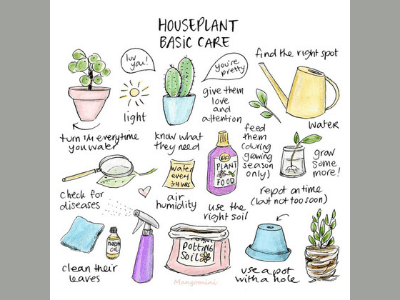 HOUSEPLANT
BASIC CARE
luv you!
you're
pretty
find the right spot
light
give them
love
and
attention
water
turn 1/4 everytime
you water
know what
they need
water
every
feed
them
(during
growing
season
only)
PLANT
FOOD
grow
some
more!
check for
diseases
air
humidity
use the
right soil
repot on time
(but not too soon)
NEEM
OIL
POTTING
SOIL
clean their
leaves
use a pot
with a hole
Mangomini